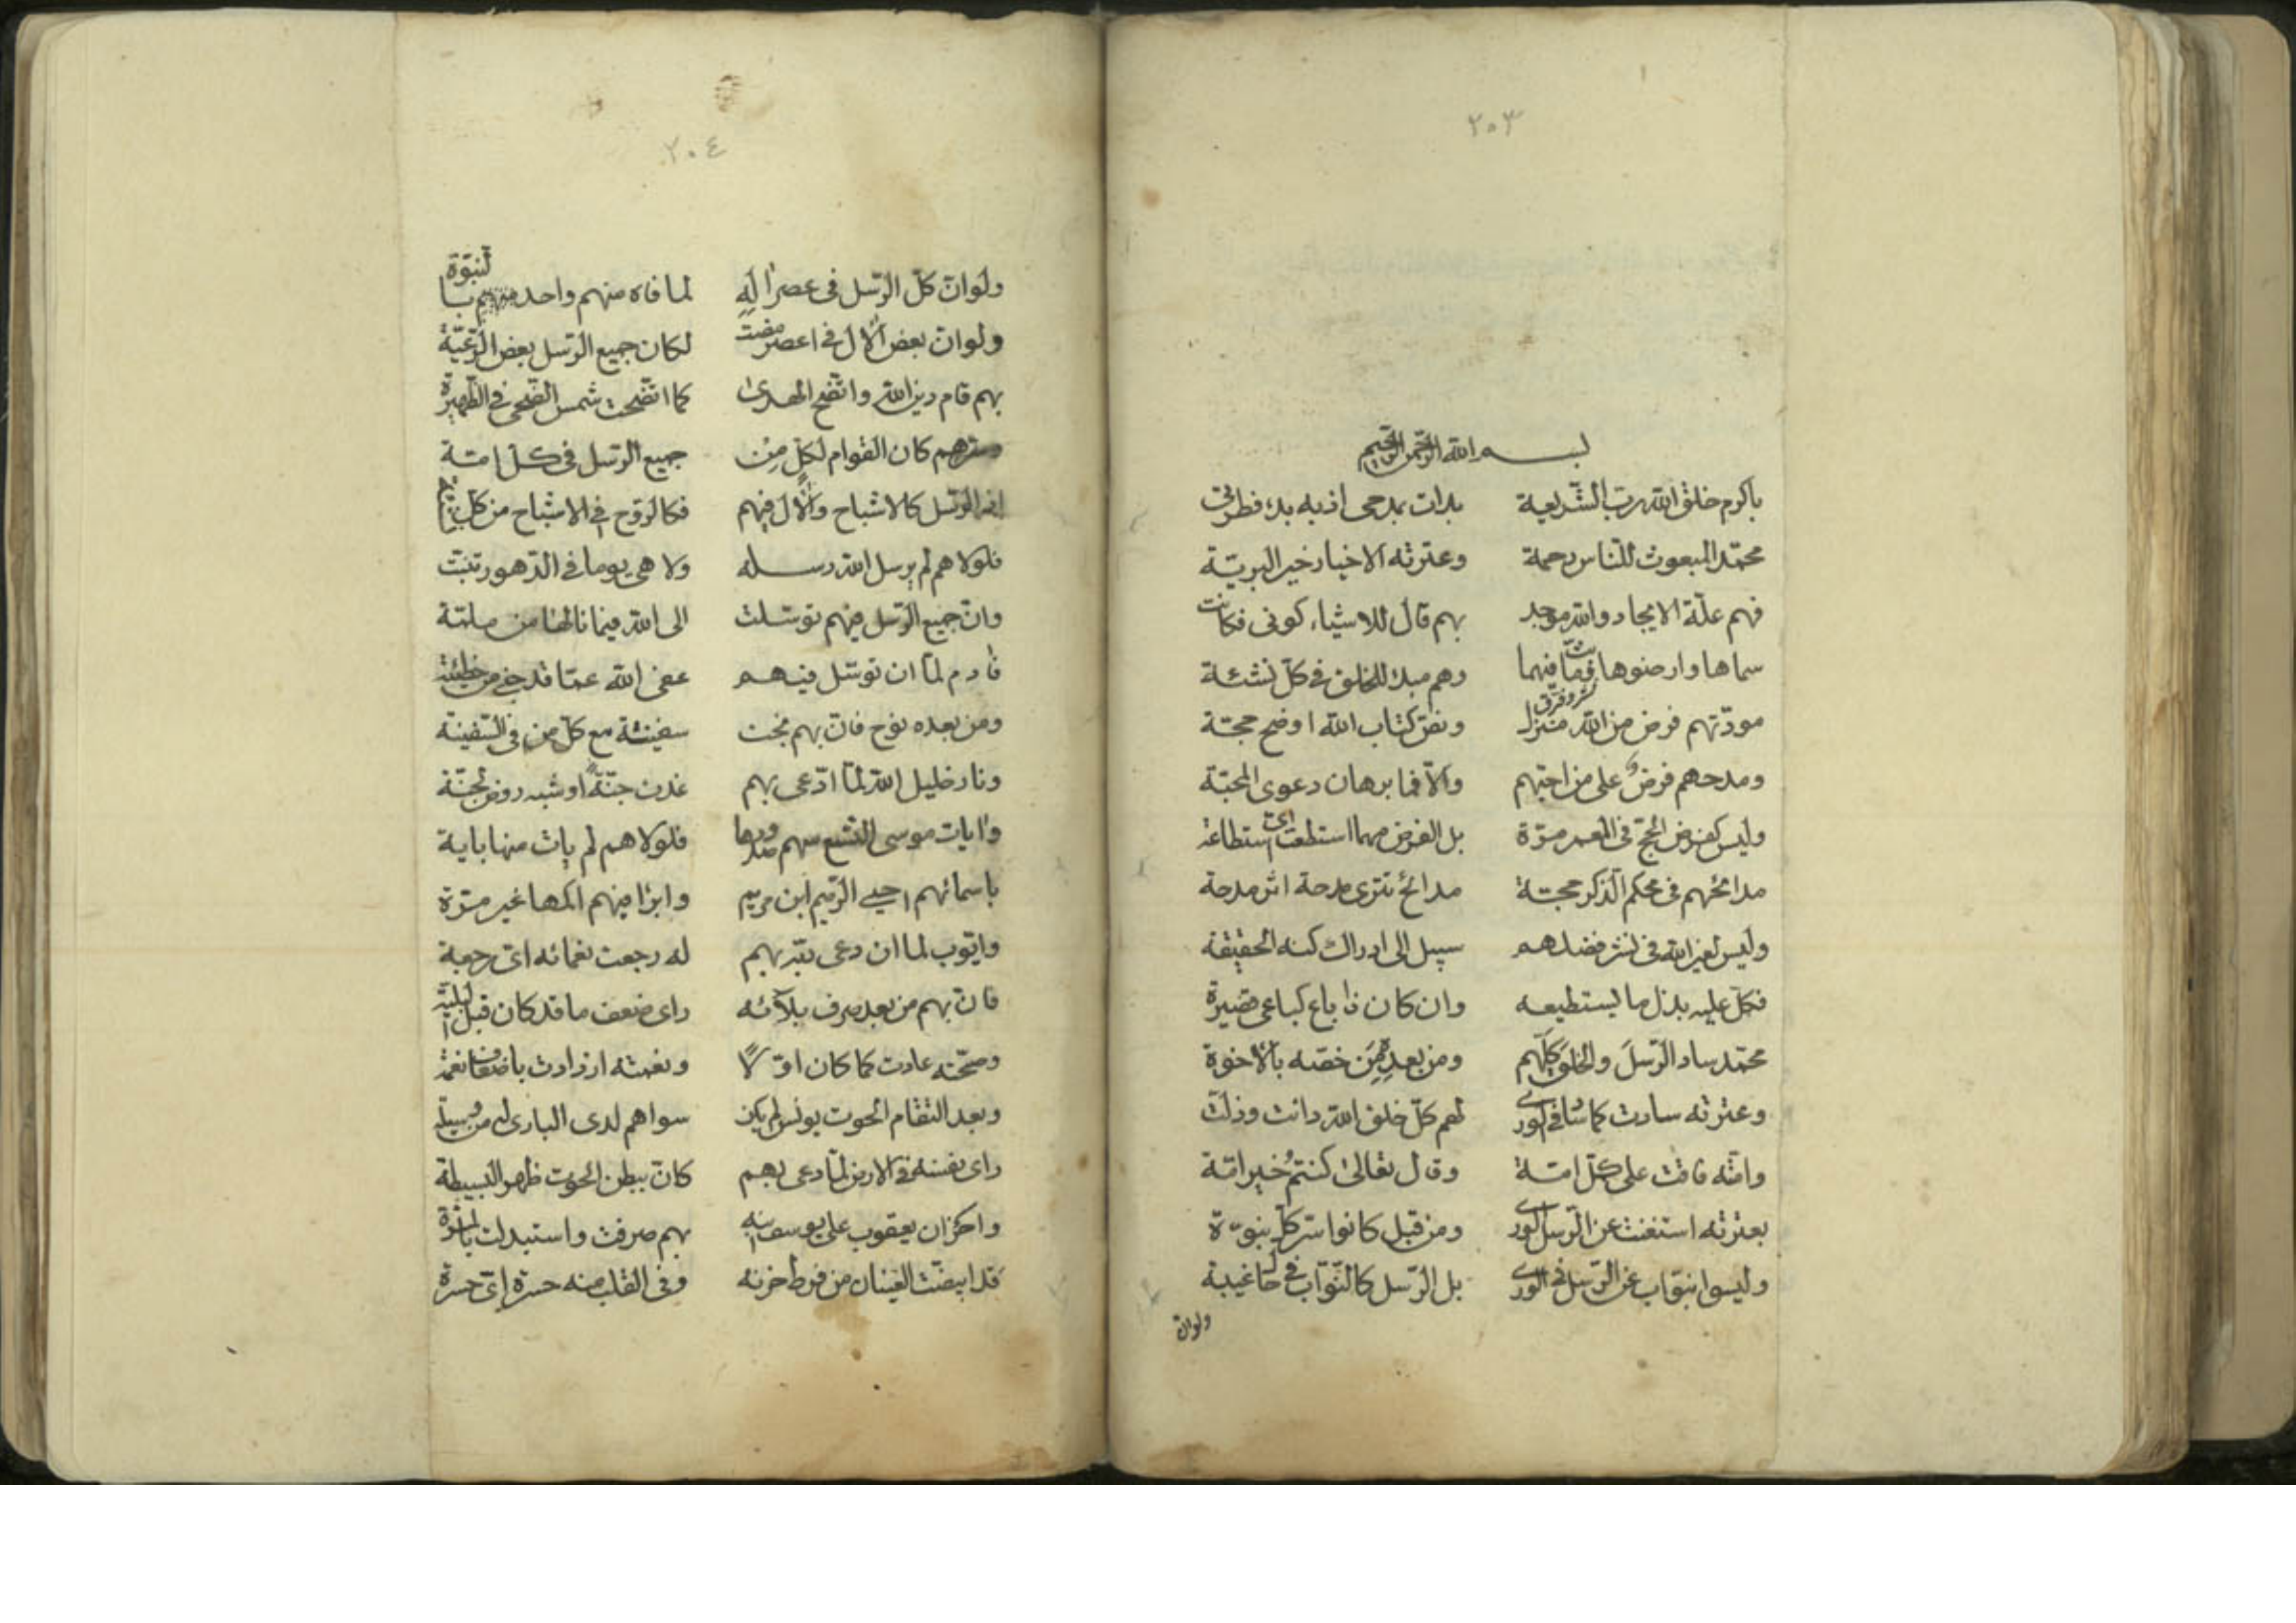 ٢٠٣
بسم الله الرحمن الرحيم
باكرم خلق الله رب الشريعة بدات بمدحى اذ به بدء فطرتى
محمّد المبعوث للنّاس رحمة وعترته الاخيار خير البريّة
فهم علّة الايجاد والله موجد بهم قال للاشياء كونى فكانت
سماها وارضوها وما فيهما وهم مبدء للخلق فى كلّ نشئة
مودّتهم فرض من الله منزل ونصّ كتاب الله اوضح حجّة
ومدحهم فرض على من احبّهم والّا فما برهان دعوى المحبّة
وليس كفرض الحجّ فى العمر مرّة بل الفرض مهما استطعت اىّ استطاعة
مدائحهم فى محكم الذّكر حجّة مدائح تترى مدحة اثر مدحة
وليس لغير الله فى نشر فضلهم سبيل الى ادراك كنه الحقيقة
فكلّ عليه بذل ما يستطيعه وان كان ذا باع كباعى قصيرة
محمّد ساد الرّسل والخلق كلّهم ومن بعده من خصّه بالاخوة
وعترته سادت كما ساد فى الورى لهم كلّ خلق الله دانت وذلّت
وامّته فاقت على كلّ امّة وقال تعالى كنتم خير امّة
بعترته استغنت عن الرّسل الورى ومن قبل كانوا سرّ كلّ نبوّة
وليسوا بنوّاب عن الرّسل فى الورى بل الرّسل كالنّوّاب فى حال غيبة
ولوان
٢٠٤
ولوانّ كلّ الرّسل فى عصر اله لما فاه منهم واحد بالنبوّة
ولوان بعض الال فى اعصر مضت لكان جميع الرّسل بعض الرّعيّة
بهم قام دين الله واتّضح الهدى كما اتّضحت شمس الضّحى فى الظّهيرة
وسرّهم كان القوام لكلّ من جميع الرّسل فى كلّ امّة
الرّسل كالاشباح والال فيهم فكالرّوح فى الاشباح من كلّ
فلولا هم لم يرسل الله رسله ولا هى يوما فى الدّهور تنبّت
وانّ جميع الرّسل فيهم توسّلت الى الله فيما نالها من ملمّة
فادم لمّا ان توسّل فيهم عفى الله عمّا قد جنى من خطيئة
ومن بعده نوح فان بهم نجت سفينته مع كلّ من فى السّفينة
ونار خليل الله لمّا ادّعى بهم غدت جنّة او شبه روض بجنّة
وايات موسى التّسع منهم صدورها فلولا هم لم يات منها باية
باسمائهم احيى الرّميم ابن مريم وابرا فيهم اكمها غير مرّة
وايّوب لما ان دعى ربّه بهم له رجعت نعمائه اىّ رجعة
فان بهم من بعد صرف بلآئه راى ضعف ما قد كان قبل البليّة
وصحّته عادت كما كان اوّلًا ونعمته ازدادت باضعاف نعمة
وبعد التقام الحوت يونس لم يكن سواهم لدى البارى له من وسيلة
راى نفسه فى الارض لمّا دعى بهم كانّ ببطن الحوت ظهر البسيطة
واحزان يعقوب على يوسف ابنه بهم صرفت واستبدلت بالمسرّة
قد ابيضّت العينان من فرط حزنه وفى القلب منه حسرة اىّ حسرة